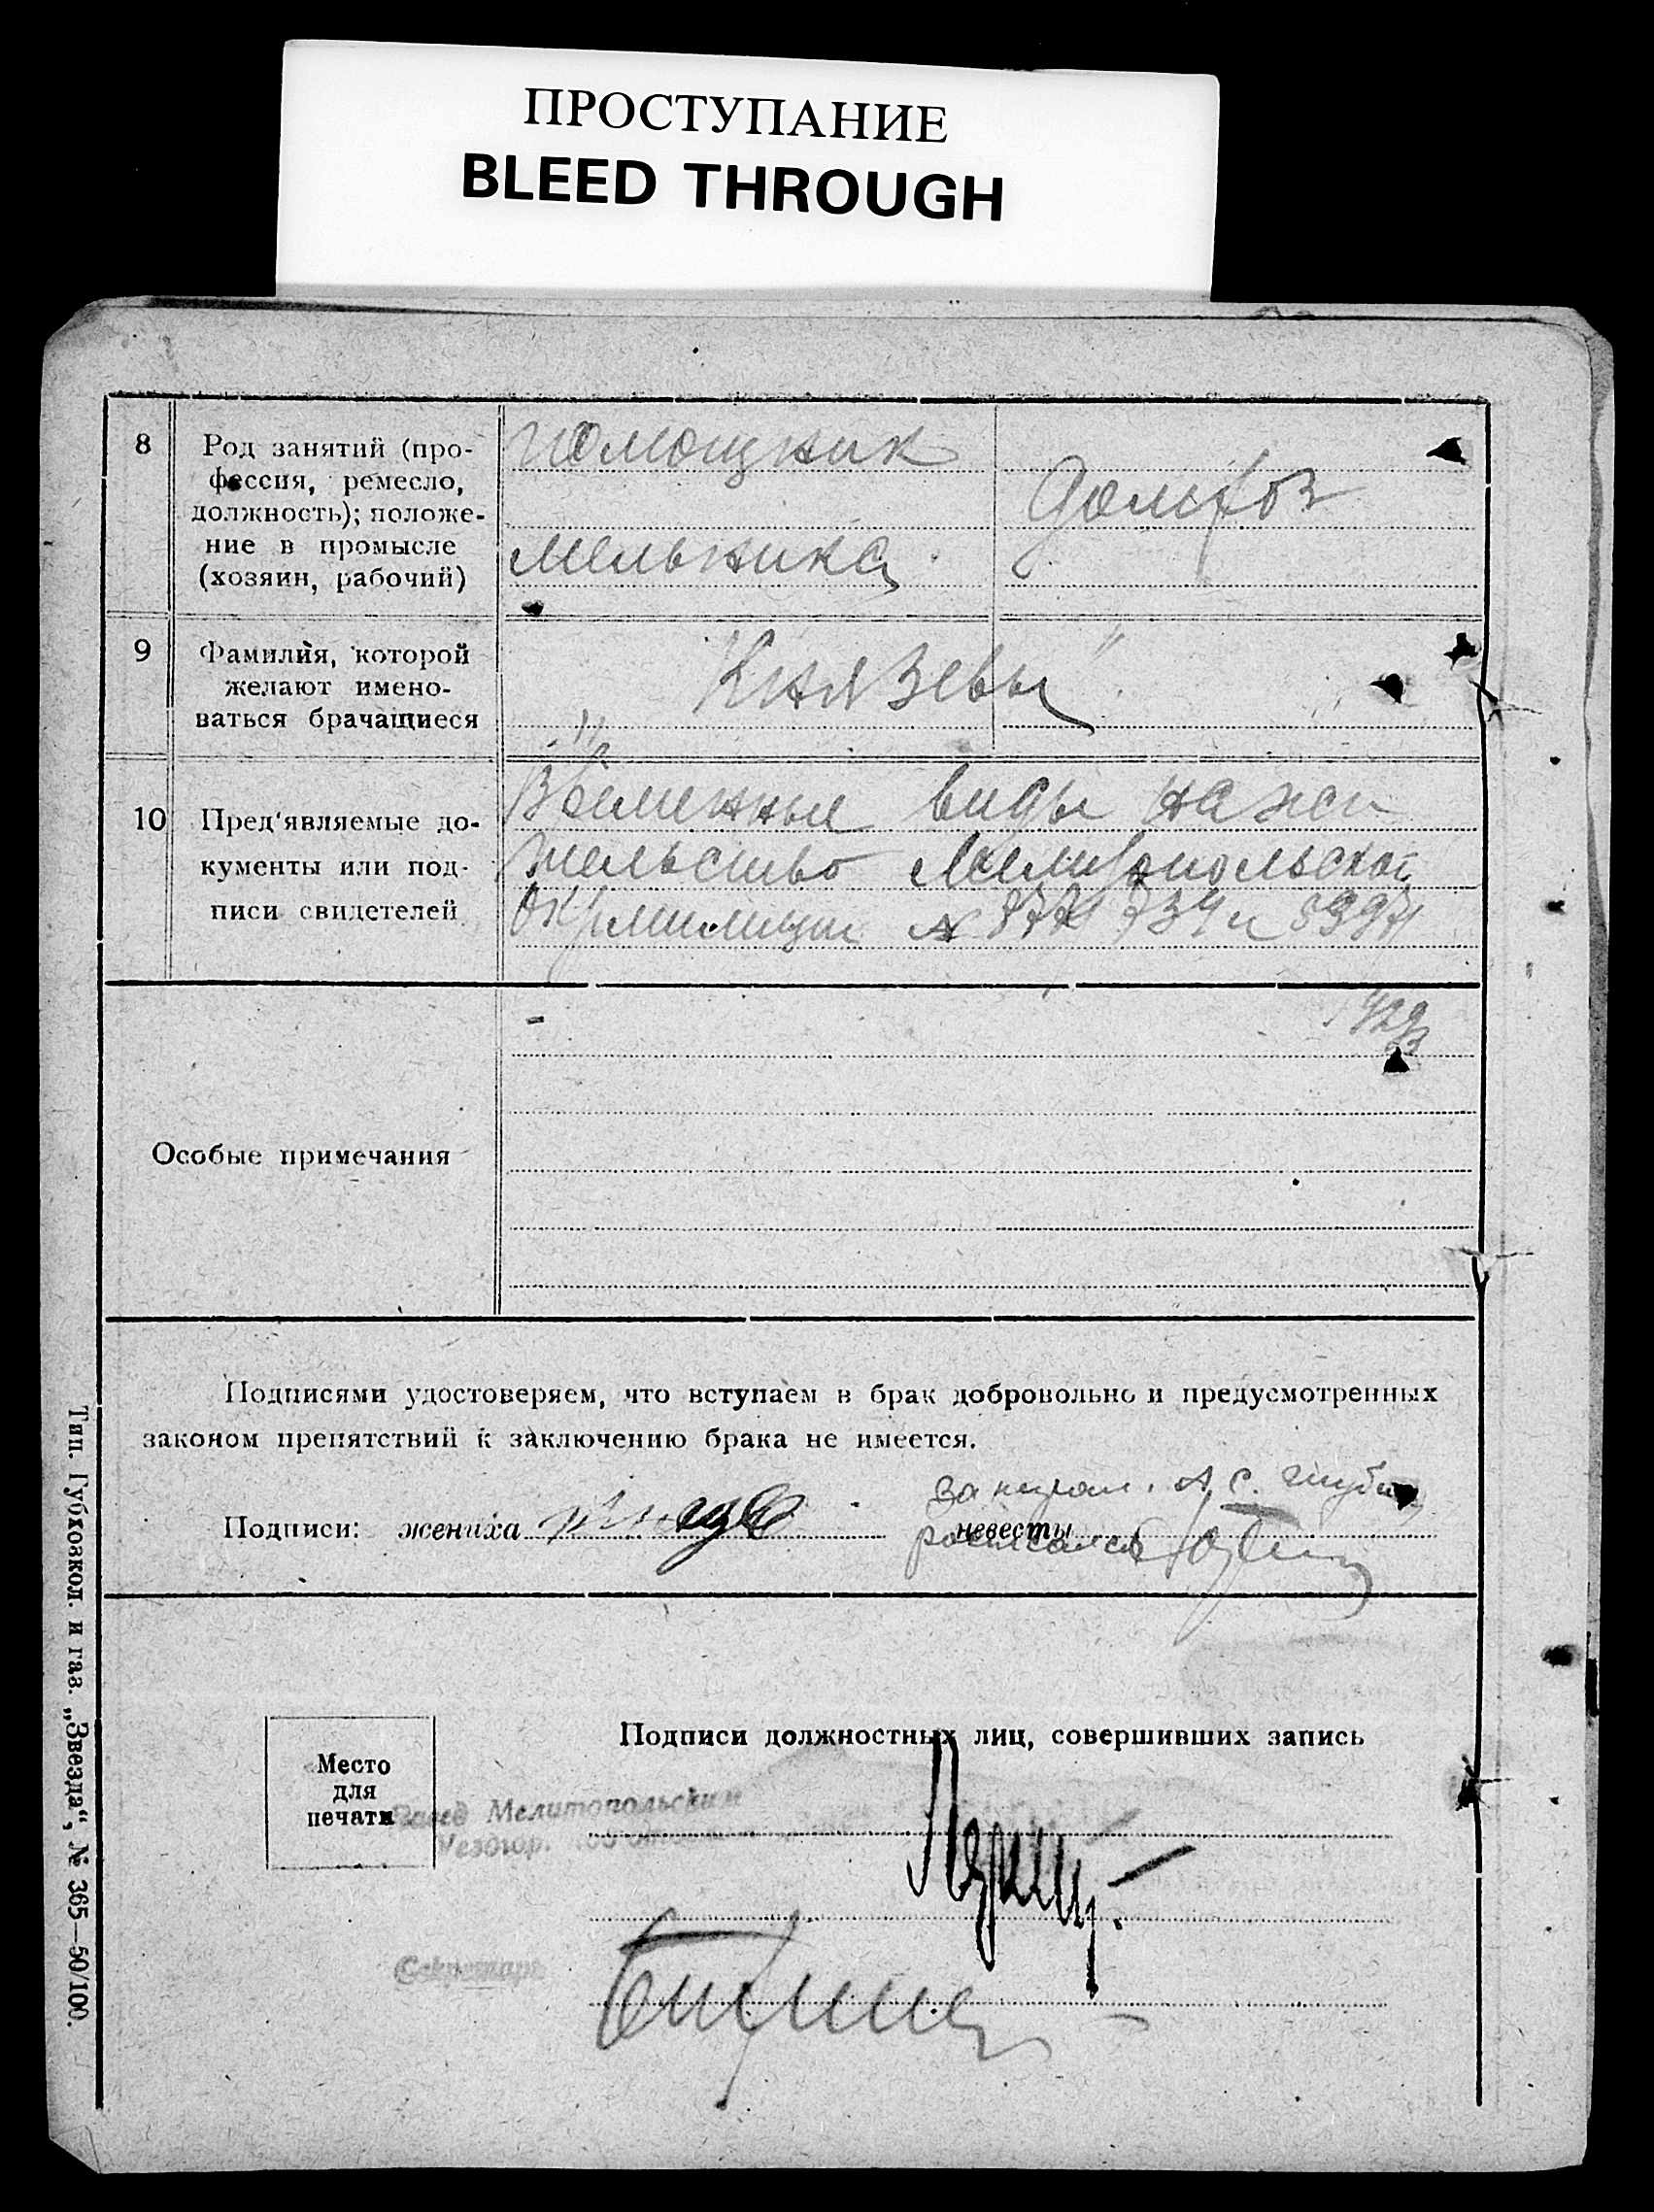 ПРОСТУПАНИЕ
BLEED THROUGH
8
Род занятий (про-
фессия, ремесло,
должность); положе-
ние в промысле
(хозяин, рабочий)
помощник
мельника.
домхоз
9
Фамилия, которой
желают имено-
ваться брачащиеся
"Князевы"
10
Пред'являемые до-
кументы или под-
писи свидетелей
Временные виды на жи-
тельство Мелитопольской
Окрмилиции №
Особые примечания
-
Подписями удостоверяем, что вступаем в брак добровольно и предусмотренных
законом препятствий к заключению брака не имеется.
Подписи: жениха
за неграм. А. С.
невесты
расписался
Подписи должностных лиц, совершивших запись
Место
для
печати
Завед Мелитопольским
Секретарь
Тип. Губхозкол. и газ. „Звезда“, № 365—50/100.